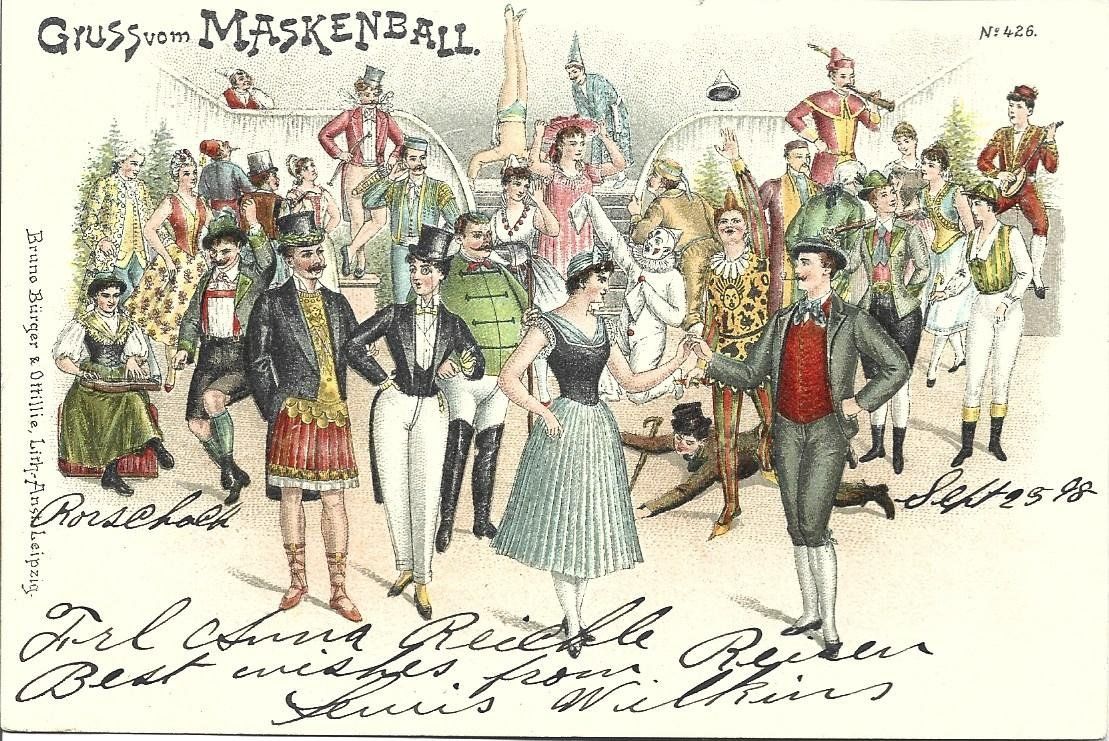 Gruss vom MASKENBALL.
No. 426.
Bruno Bürger & Ottilli, Lith.-Anst. Leipzig.
Rorschach
Sept 25 98
Frl Anna Reichle
Best wishes from Reisen
Lewis Wilkins